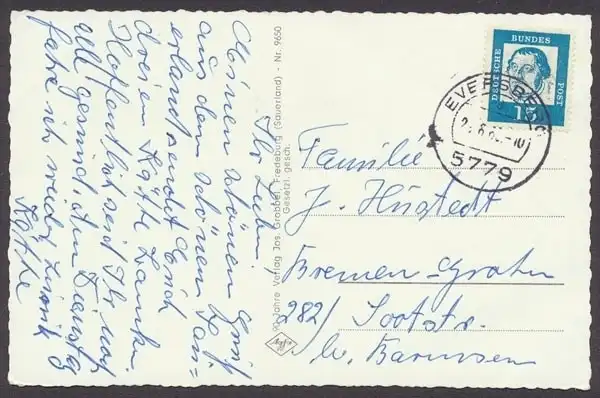 Ihr Lieben!
Meinen schönen Gruß
aus dem schönen Sau=
erland sendet Euch
dreien Käthe
Hoffentlich seid Ihr noch
all gesund, am Dienstag
fahre ich wieder zurück
Käthe
90 Jahre Verlag Jos. Grobbel, Fredeburg (Sauerland) - Nr. 9650
Gesetzl. gesch.
Agfa
DEUTSCHE BUNDES POST
15
EVERSBERG
5779
Familie
J. Hustedt
Bremen-Grohn
282/ Sootstr.
b/